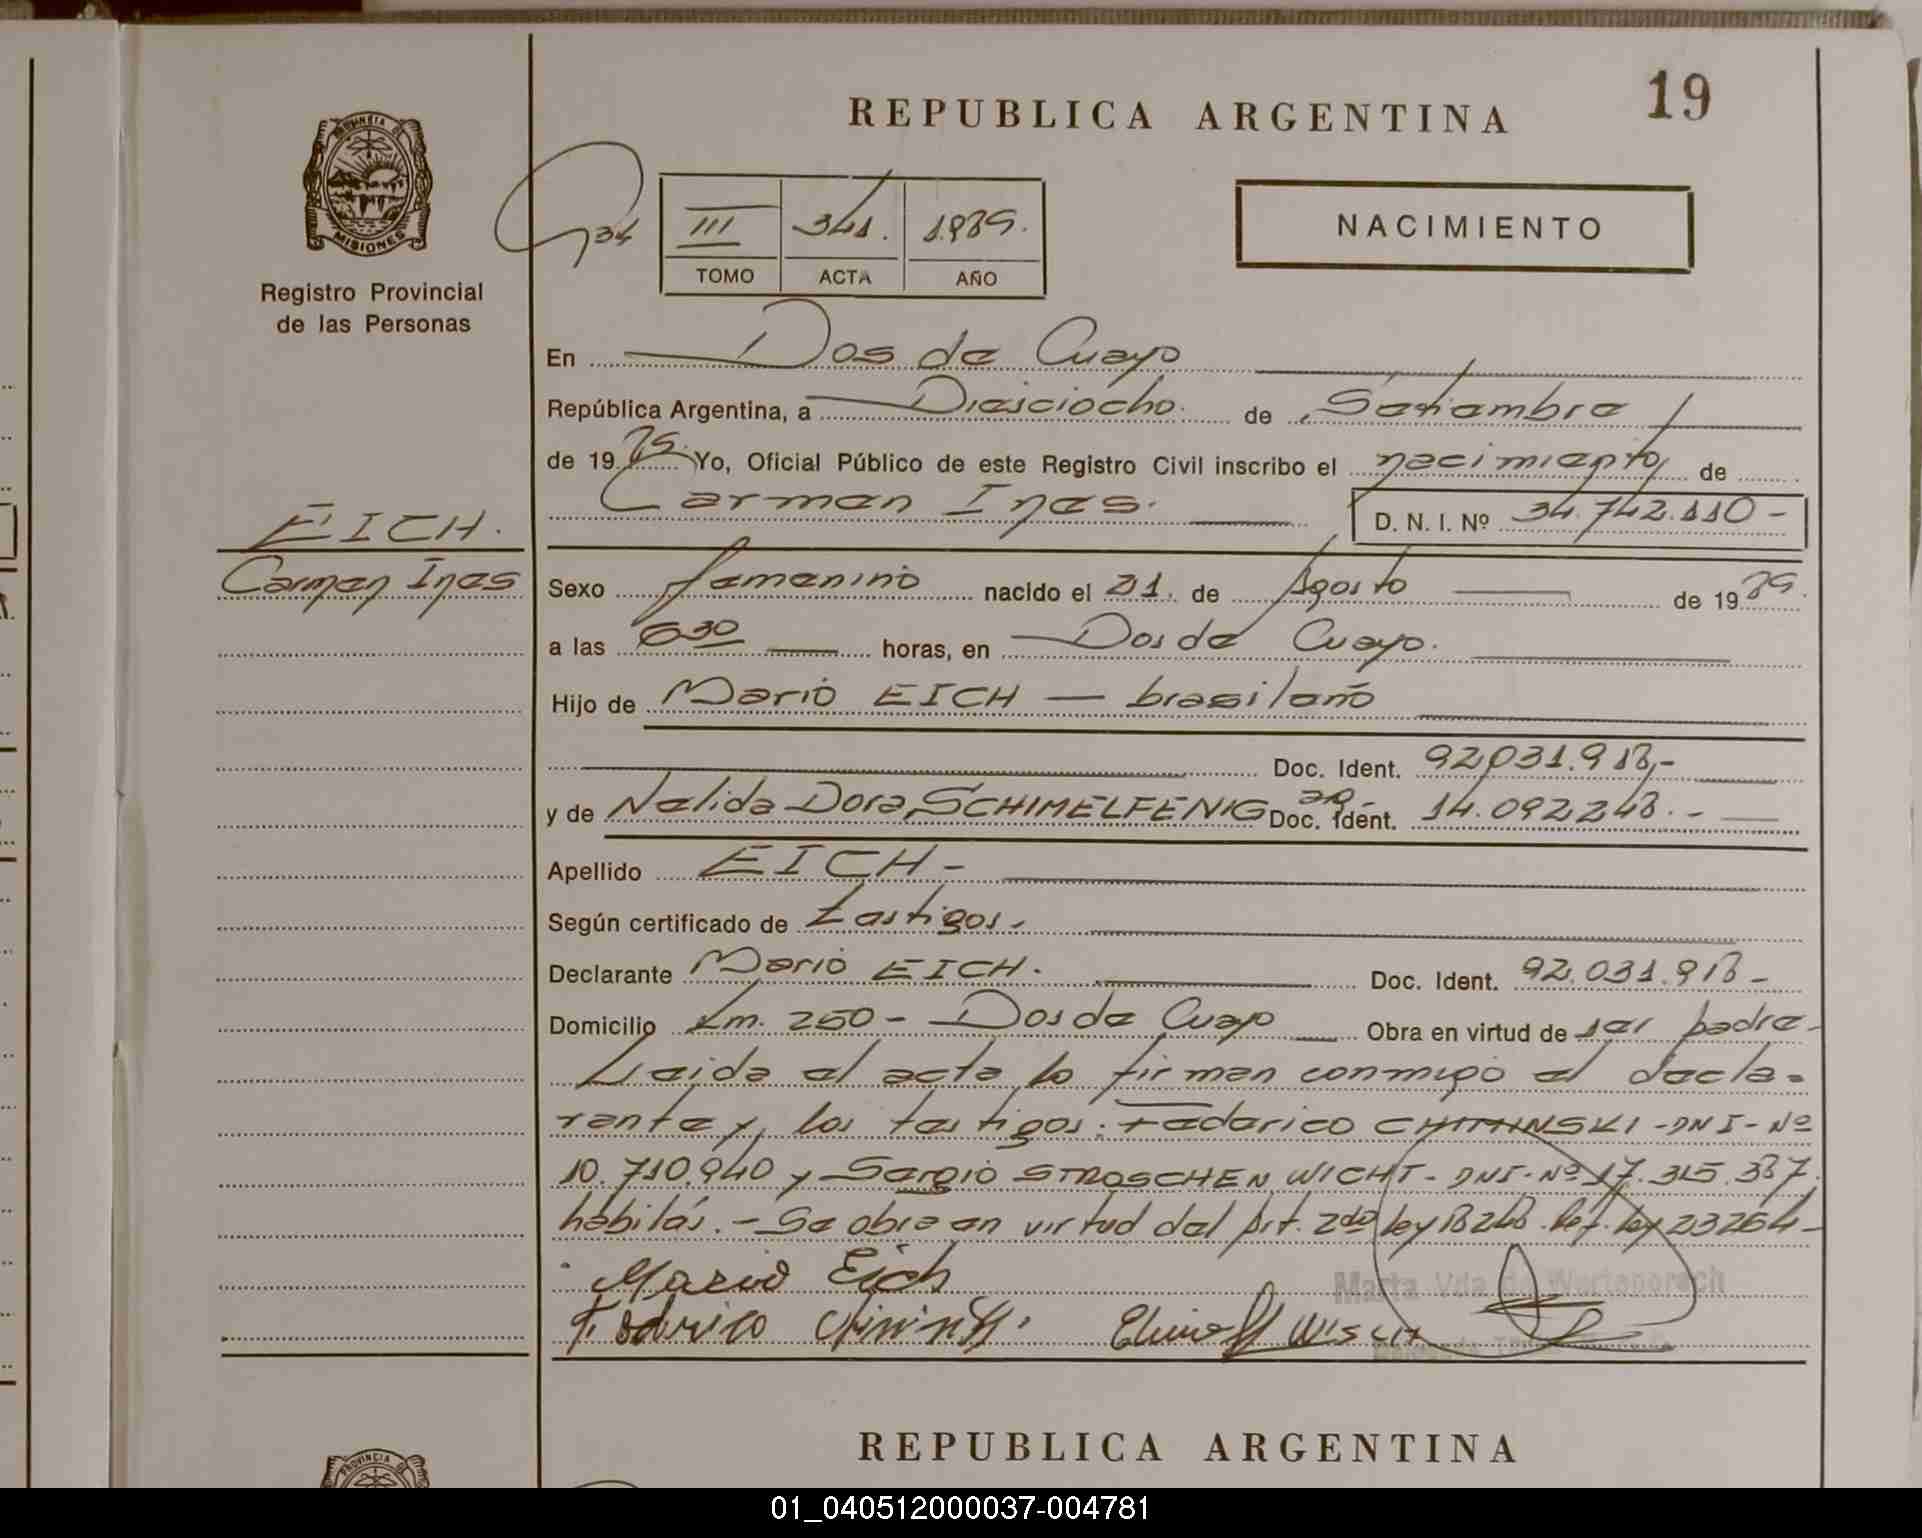 REPUBLICA ARGENTINA
19
PROVINCIA DE
MISIONES
Registro Provincial
de las Personas
34
III
341.
1.989.
TOMO
ACTA
AÑO
NACIMIENTO
En Dos de Mayo
República Argentina, a Diesciocho de Setiembre
de 19 89. Yo, Oficial Público de este Registro Civil inscribo el nacimiento de
Carmen Ines. D. N. I. Nº 34.742.110-
EICH.
Carmen Ines
Sexo femenino nacido el 21. de Agosto de 19 89.
a las 6 30 horas, en Dos de Mayo.
Hijo de Mario EICH — brasileño
Doc. Ident. 92.031.918,-
y de Nelida Dora SCHIMELFENIG Doc. Ident. 14.092.248.-
ar-
Apellido EICH-
Según certificado de testigos.
Declarante Mario EICH. Doc. Ident. 92.031.918-
Domicilio Km. 250- Dos de Mayo Obra en virtud de ser padre-
Leida el acta lo firman conmigo el decla-
rante y los testigos: Federico CHIMINSKI-DNI-Nº
10.710.940 y Sergio STROSCHEN WICHT- DNI-Nº 17.315.387.
habiles.- Se obra en virtud del Art. 2do ley 18248. Ref. ley 23264-
Mario Eich
Federico
Marta Vda de
REPUBLICA ARGENTINA
PROVINCIA DE
01_040512000037-004781